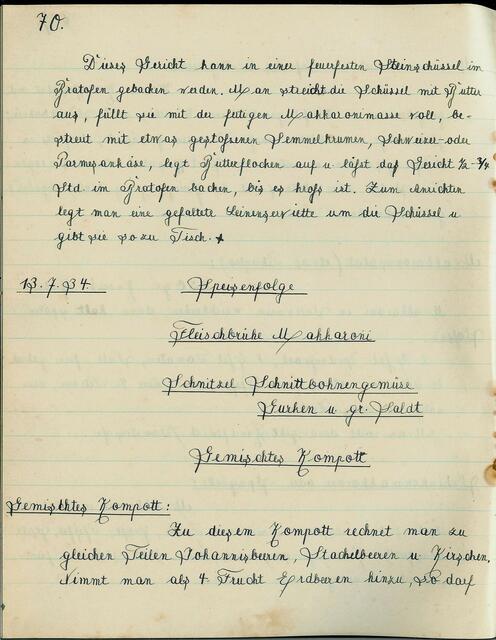 70.
Dieses Gericht kann in einer feuerfesten Steinschüssel im
Bratofen gebacken werden. Man streicht die Schüssel mit Butter
aus, füllt sie mit der fertigen Makkaronimasse voll, be-
streut mit etwas gestoßenen Semmelkrumen, Schweizer- oder
Parmesankäse, legt Butterflocken auf u läßt das Gericht ½ - ¾
Std. im Bratofen backen, bis es kroß ist. Zum Anrichten
legt man eine gefaltete Leinenserviette um die Schüssel u
gibt sie so zu Tisch.
13.7.34. Speisenfolge
Fleischbrühe Makkaroni
Schnitzel Schnittbohnengemüse
Gurken u gr. Saldt
Gemischtes Kompott
Gemischtes Kompott:
Zu diesem Kompott rechnet man zu
gleichen Teilen Johannisbeeren, Stachelbeeren u Kirschen.
Nimmt man als 4 Frucht Erdbeeren hinzu, so darf